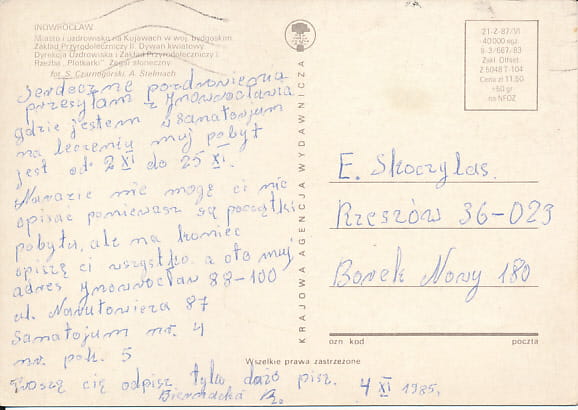 INOWROCŁAW
Miasto i uzdrowisko na Kujawach w woj. bydgoskim.
Zakład Przyrodoleczniczy II. Dywan kwiatowy.
Dyrekcja Uzdrowiska i Zakład Przyrodoleczniczy I.
Rzeźba „Plotkarki". Zegar słoneczny
fot. S. Czarnogórski, A. Stelmach
Serdeczne pozdrowienia
przesyłam z Jnowrocławia
gdzie jestem w sanatorjum
na leczeniu muj pobyt
jest od 2 XI do 25 XI.
Narazie nie mogę ci nic
opisać poniewasz są początki
pobytu, ale na koniec
opiszę ci wszystko. a oto muj
adres Jnowrocław 88-100
ul. Narutowicza 87
Sanatojum nr. 4
nr. pok. 5
Proszę cię odpisz. tylko dużo pisz. 4 XI 1985.
Biernacka
KRAJOWA AGENCJA WYDAWNICZA
21-Z-87/VI
40 000 egz.
S-3/667/83
Zakł. Offset.
Z 5048 T-104
Cena zł 11,50
+50 gr
na NFOZ
E. Skoczylas.
Rzeszów 36-029
Borek Nowy 180
ozn kod poczta
Wszelkie prawa zastrzeżone